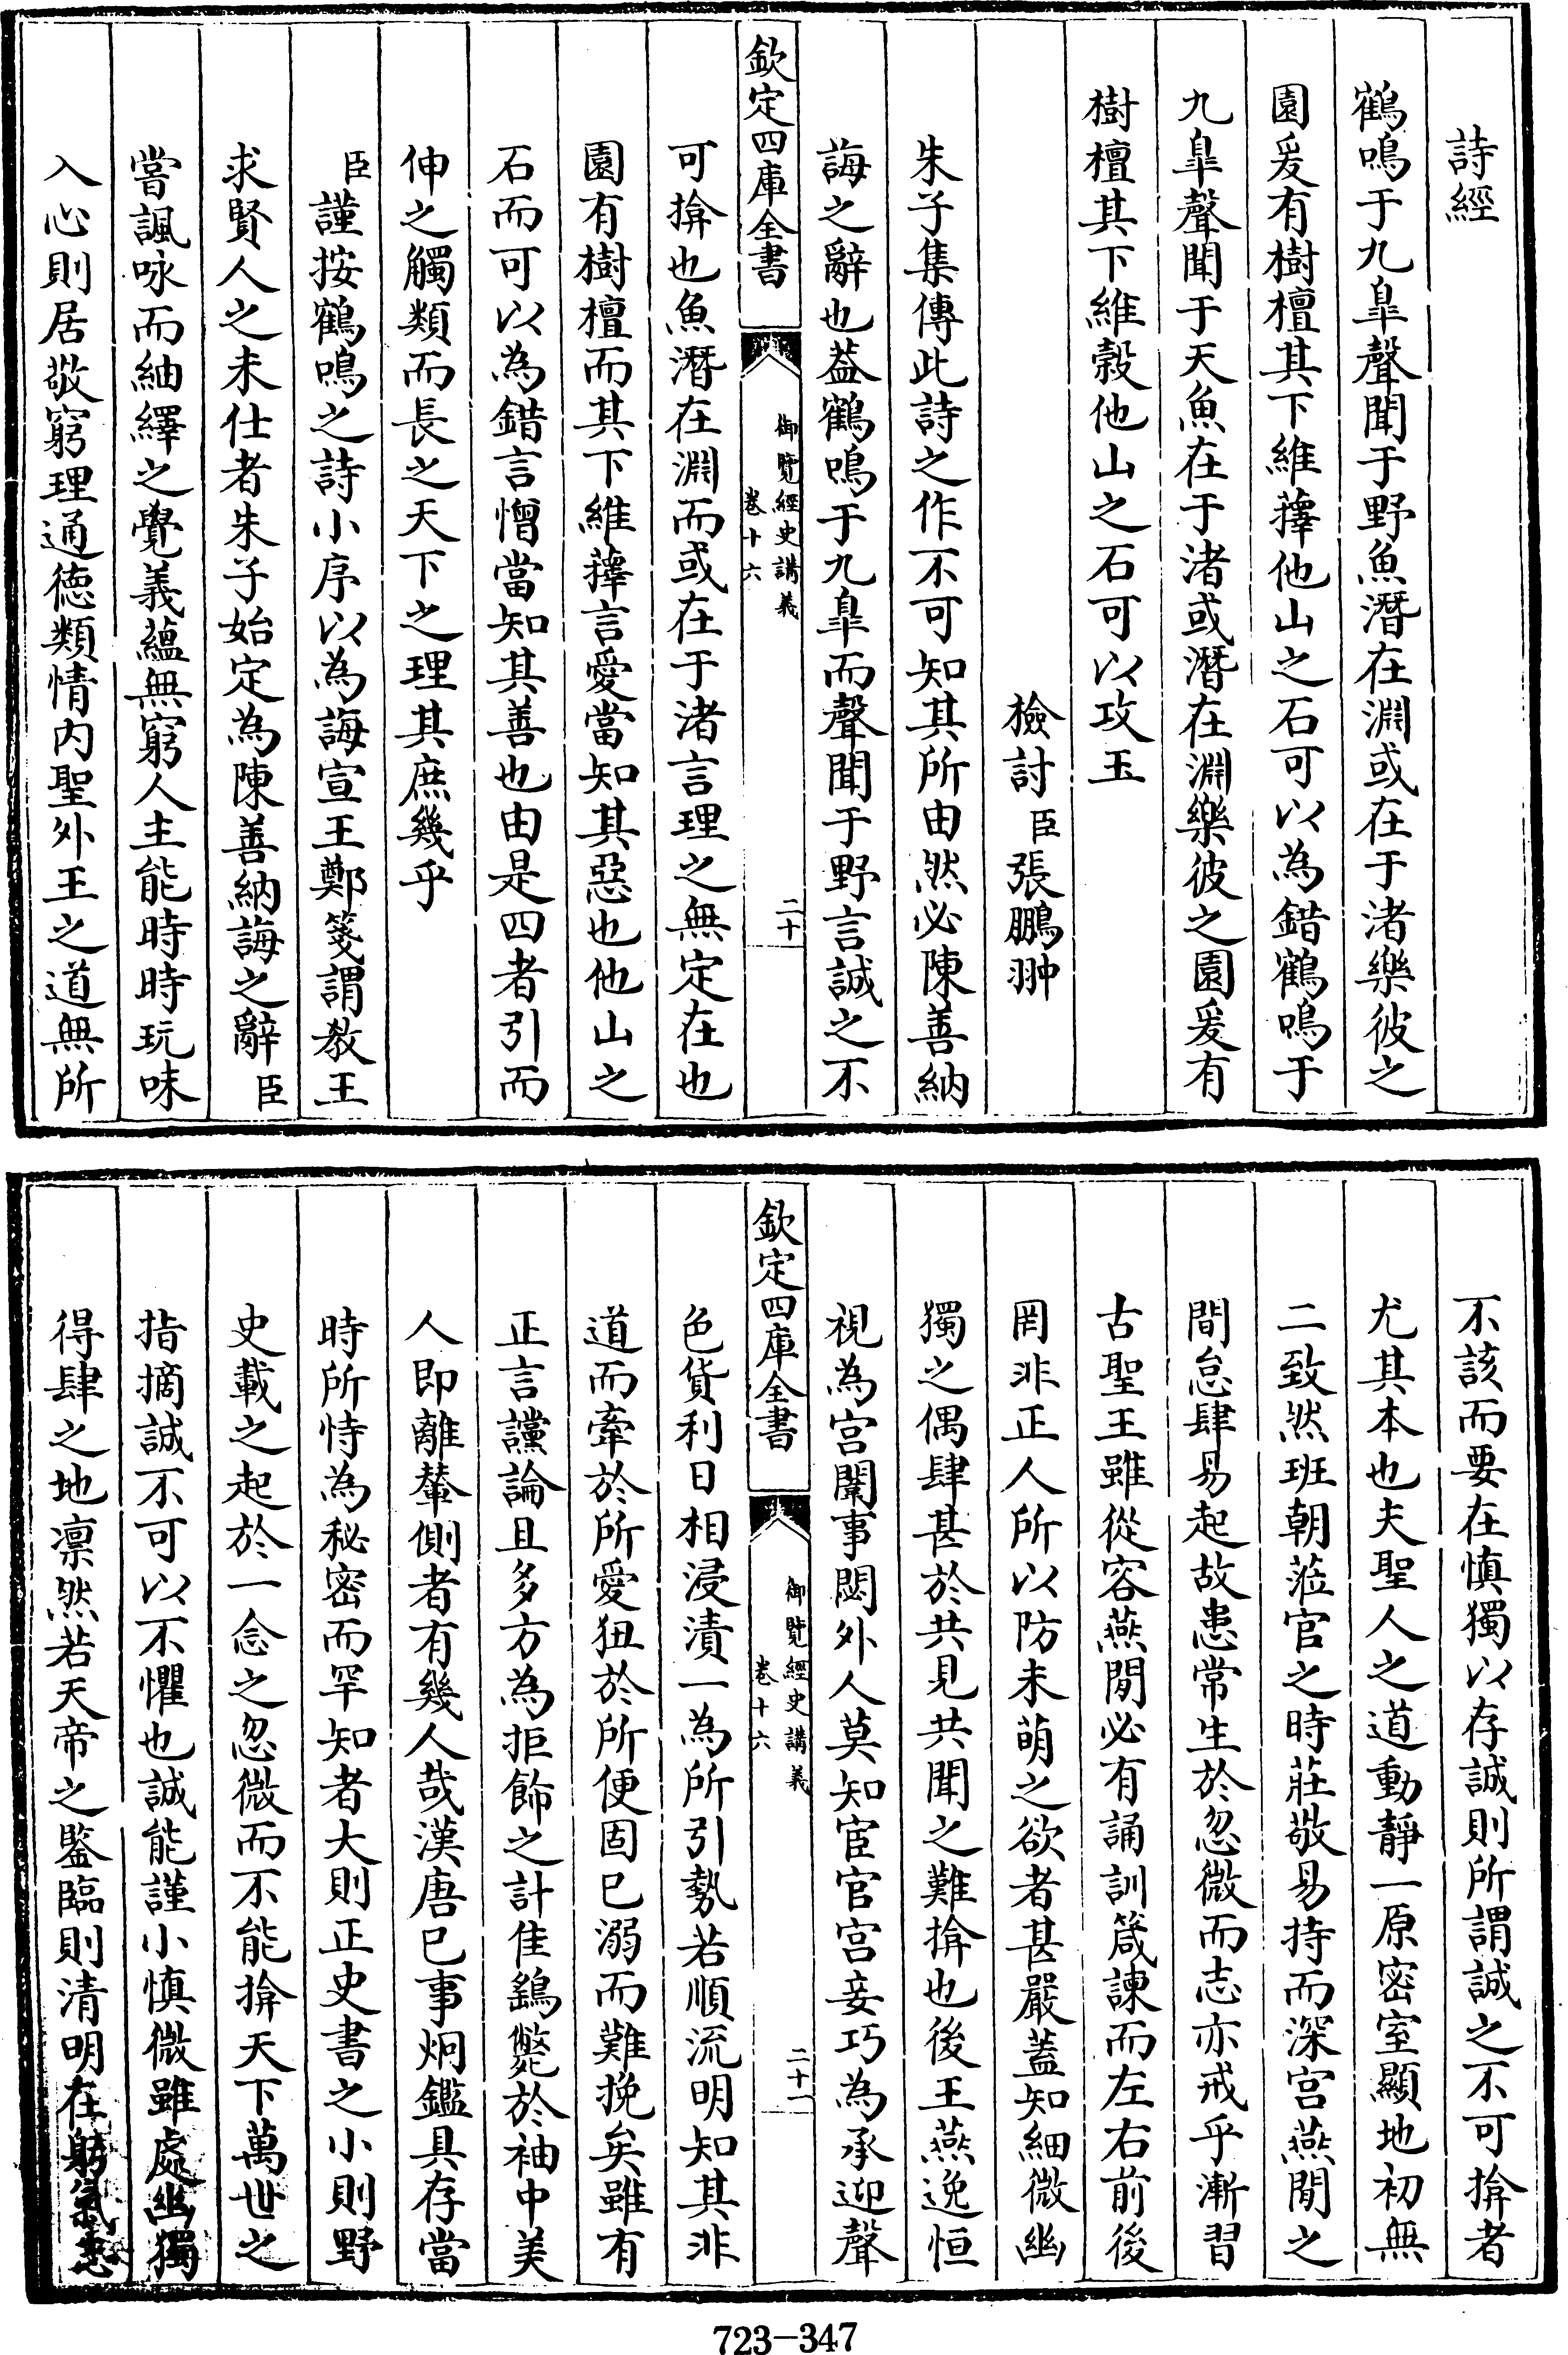 詩經
鶴鳴于九臯聲聞于野魚潛在淵或在于渚樂彼之
園爰有樹檀其下維蘀他山之石可以為錯鶴鳴于
九臯聲聞于天魚在于渚或潛在淵樂彼之園爰有
樹檀其下維榖他山之石可以攻玉
檢討臣張鵬翀
朱子集傳此詩之作不可知其所由然必陳善納
誨之辭也葢鶴鳴于九臯而聲聞于野言誠之不
欽定四庫全書
御覽經史講義
卷十六
二十
可揜也魚潛在淵而或在于渚言理之無定在也
園有樹檀而其下維蘀言愛當知其惡也他山之
石而可以為錯言憎當知其善也由是四者引而
伸之觸類而長之天下之理其庶幾乎
臣謹按鶴鳴之詩小序以為誨宣王鄭箋謂教王
求賢人之未仕者朱子始定為陳善納誨之辭臣
嘗諷咏而紬繹之覺義蘊無窮人主能時時玩味
入心則居敬窮理通德類情内聖外王之道無所
不該而要在慎獨以存誠則所謂誠之不可揜者
尤其本也夫聖人之道動靜一原密室顯地初無
二致然班朝蒞官之時莊敬易持而深宮燕閒之
間怠肆易起故患常生於忽微而志亦戒乎漸習
古聖王雖從容燕閒必有誦訓箴諫而左右前後
罔非正人所以防未萌之欲者甚嚴蓋知細微幽
獨之偶肆甚於共見共聞之難揜也後王燕逸恒
視為宮闈事閟外人莫知宦官宮妾巧為承迎聲
欽定四庫全書
御覽經史講義
卷十六
二十一
色貨利日相浸漬一為所引勢若順流明知其非
道而牽於所愛狃於所便固已溺而難挽矣雖有
正言讜論且多方為拒飾之計隹鷂斃於袖中美
人即離輦側者有幾人哉漢唐已事炯鑑具存當
時所恃為秘密而罕知者大則正史書之小則野
史載之起於一念之忽微而不能揜天下萬世之
指摘誠不可以不懼也誠能謹小慎微雖處幽獨
得肆之地凛然若天帝之鑒臨則清明在躬氣志
723-347